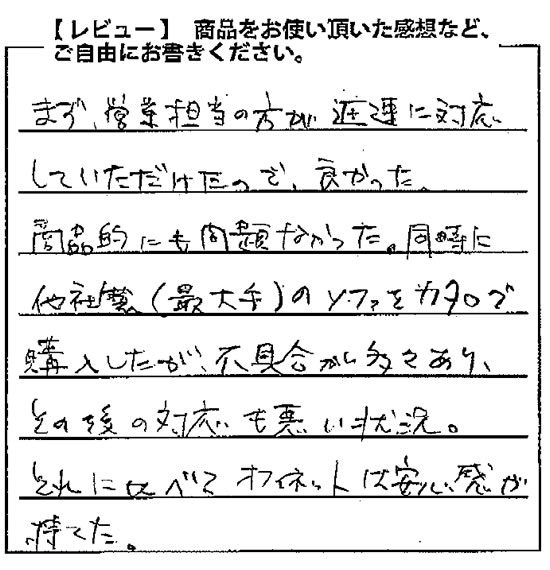 【レビュー】 商品をお使い頂いた感想など、
ご自由にお書きください。
まず、営業担当の方が迅速に対応
していただけたので、良かった。
商品的にも問題なかった。同時に
他社製(最大手)のソファをカタログで
購入したが、不具合が多々あり、
その後の対応も悪い状況。
それに比べて オフィネットは安心感が
持てた。